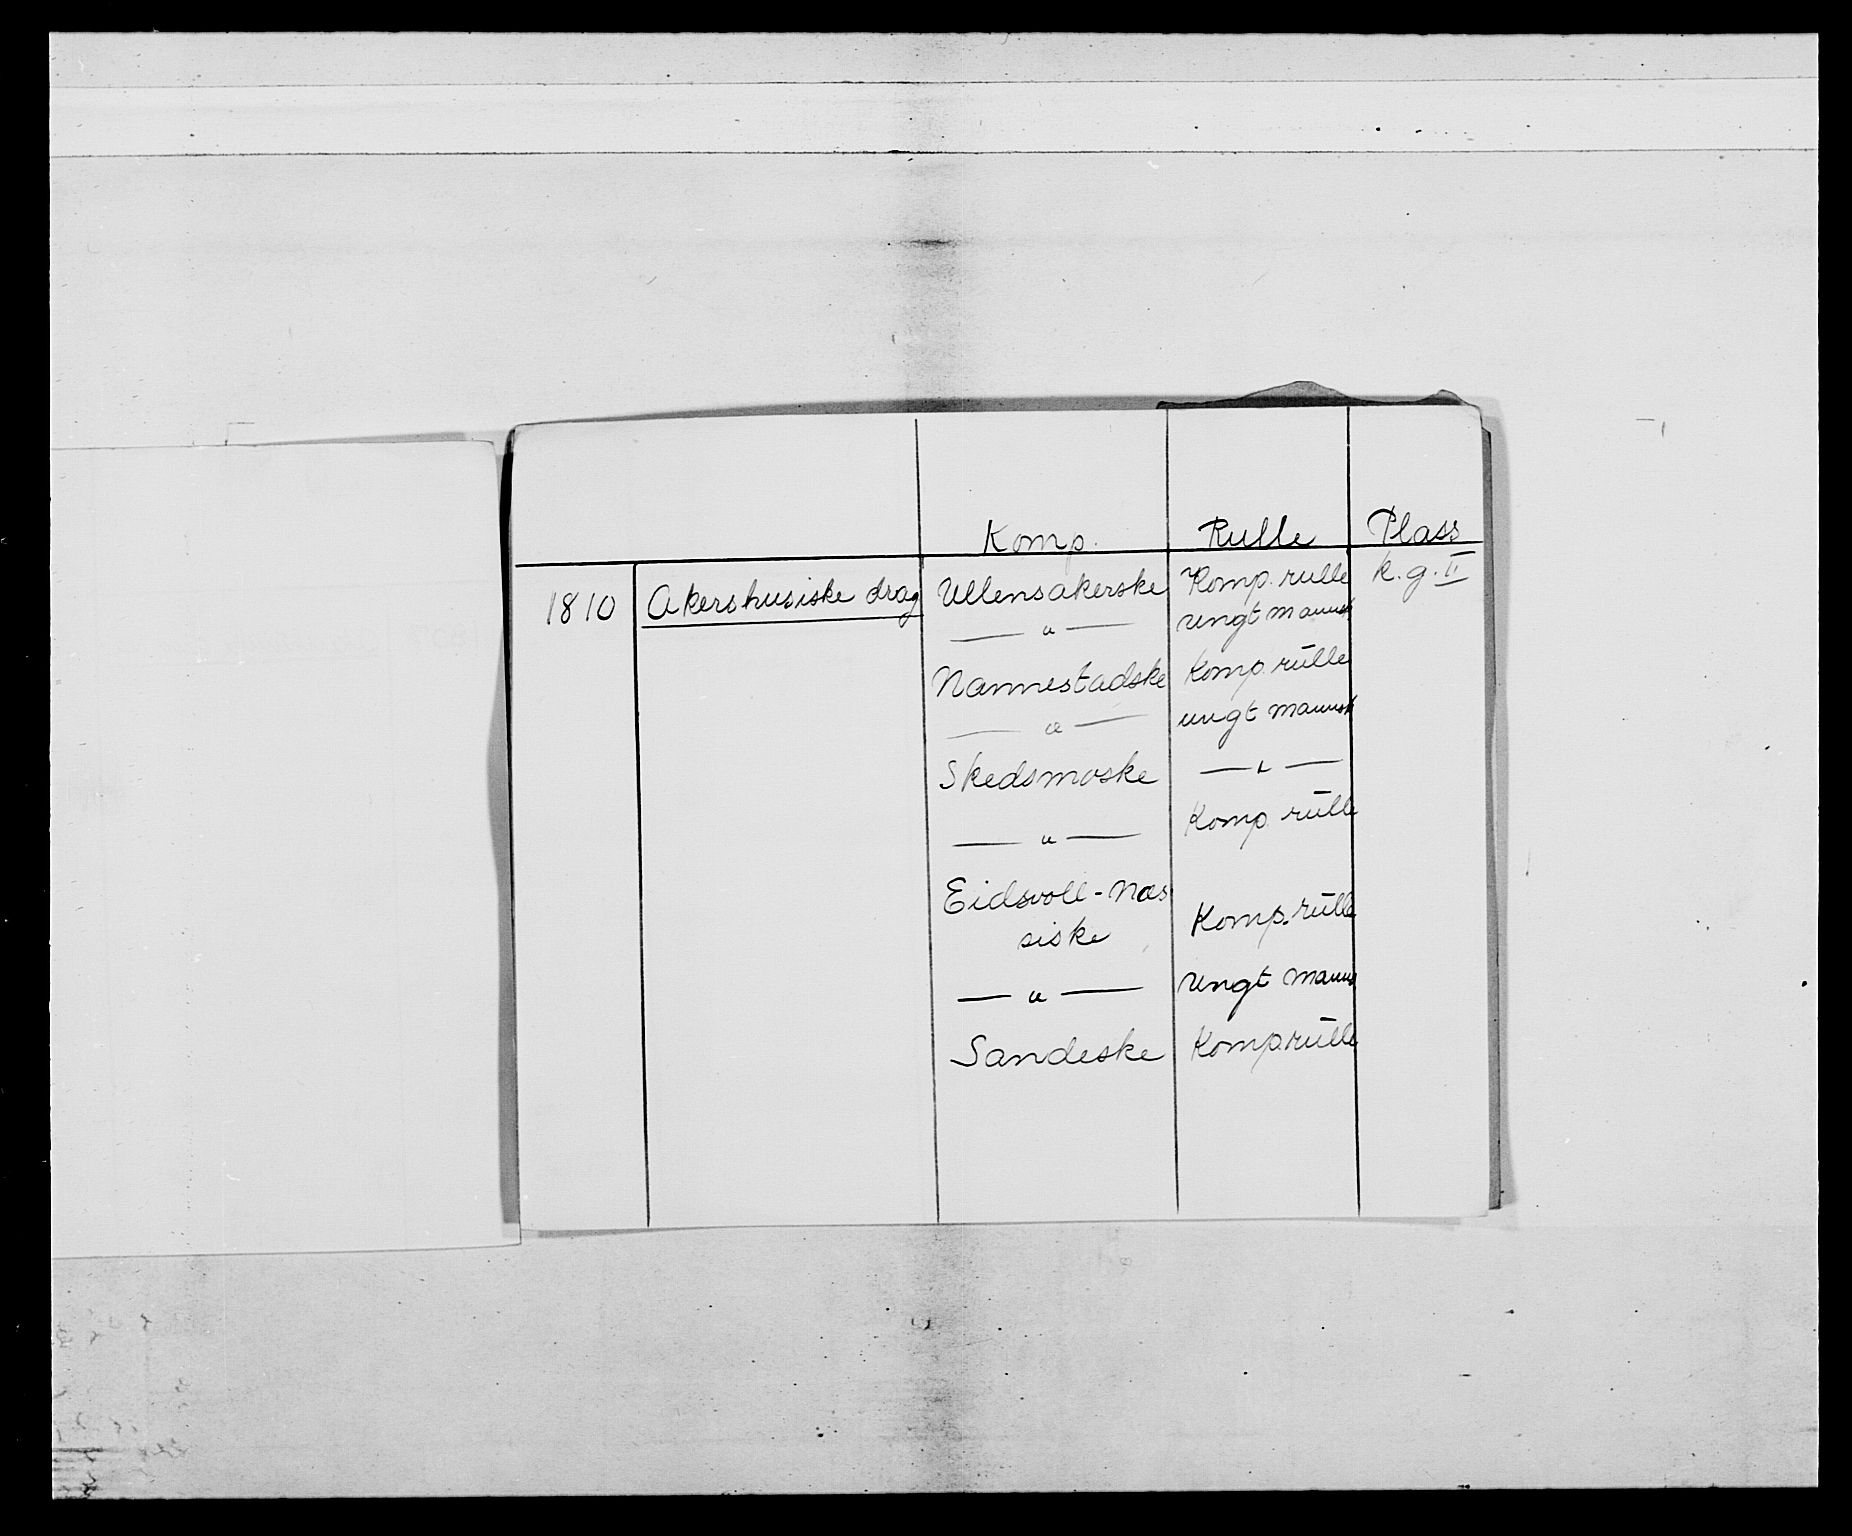 Komp. Rulle Plass
1810 Akershusiske drag Ullensakerske Komp. rulle k.g. II
— " — ungt mannsk
Nannestadske Komp. rulle
— " — ungt mannsk
Skedsmoske — " —
— " — Komp. rulle
Eidsvoll-Næs
siske Komp. rulle
— " — ungt manns
Sandeske Komp. rulle